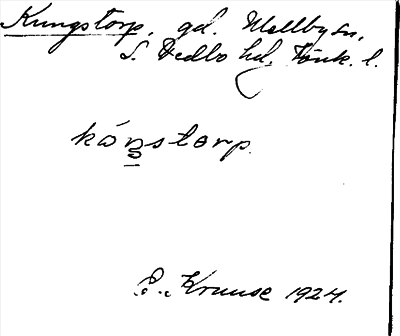 Kungstorp, gd. Mellby sn,
S. Vedbo hd, Jönk. l.
kóŋstorp.
E. Kruuse 1924.